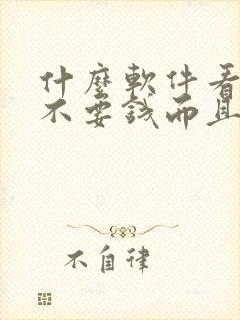 什麼軟件看
不要錢而且
不自律